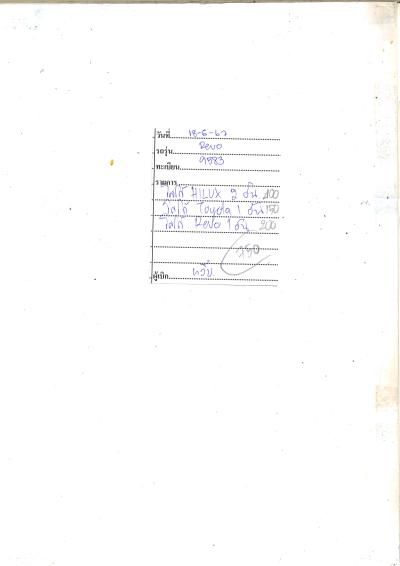 วันที่ 18-6-67
รถรุ่น Revo
ทะเบียน 9883
รายการ
โลโก้ HILUX 2 อัน 100
โลโก้ Toyota 1 อัน 150
โลโก้ Revo 1 อัน 200
ผู้เบิก